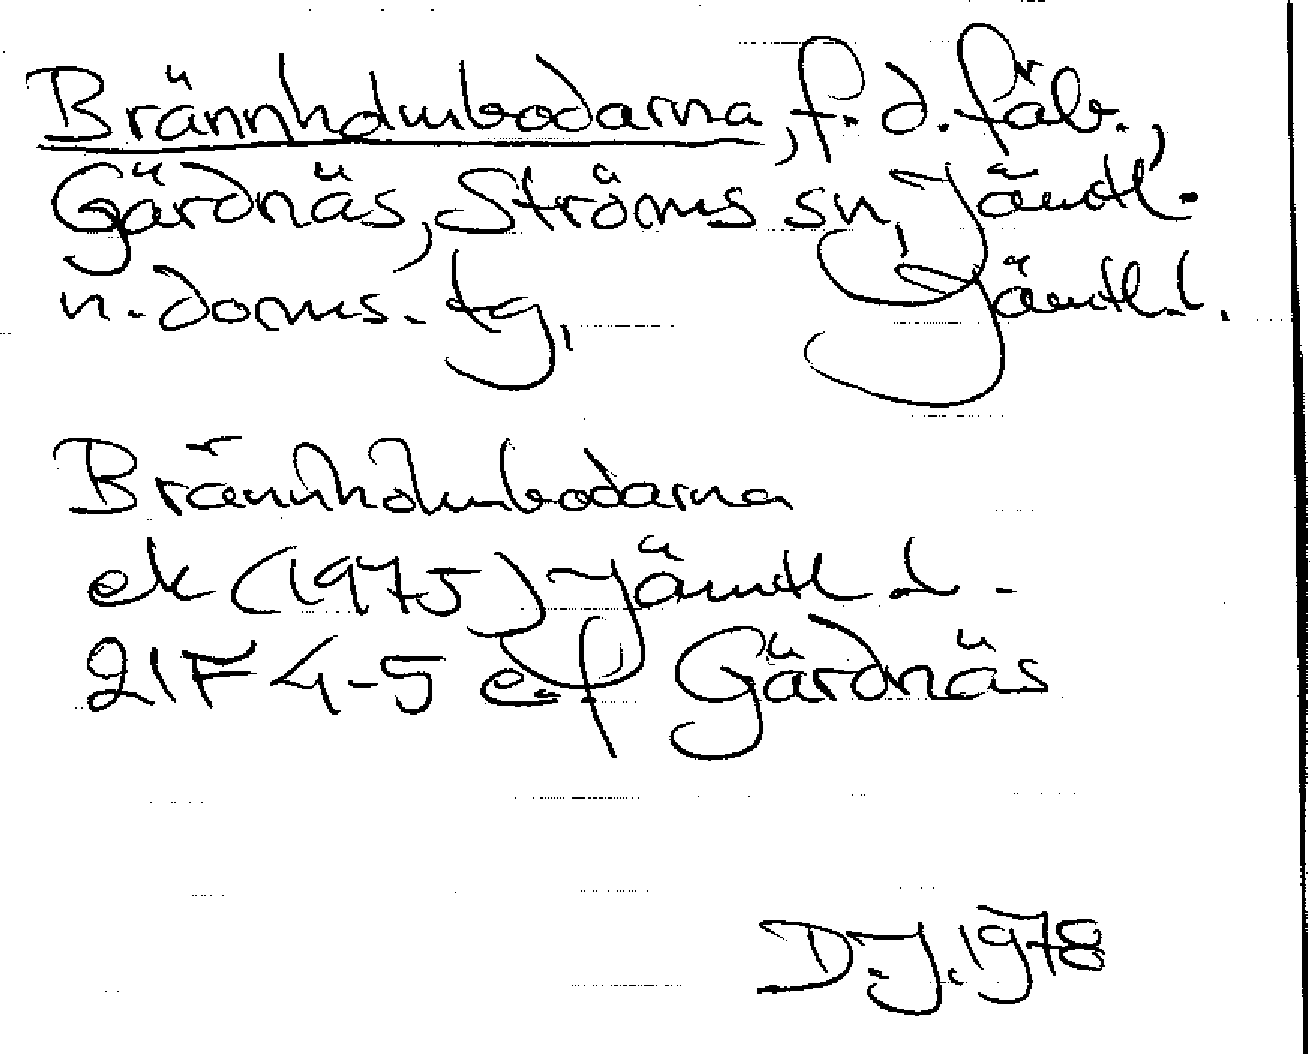 Brännholmbodarna, f.d. fäb.,
Gärdnäs, Ströms sn, Jämtl.
n. doms. tg, Jämtl. l.
Brännholmbodarna
ek (1975) Jämtl l.
21F 4-5 e-f Gärdnäs
D.J. 1978